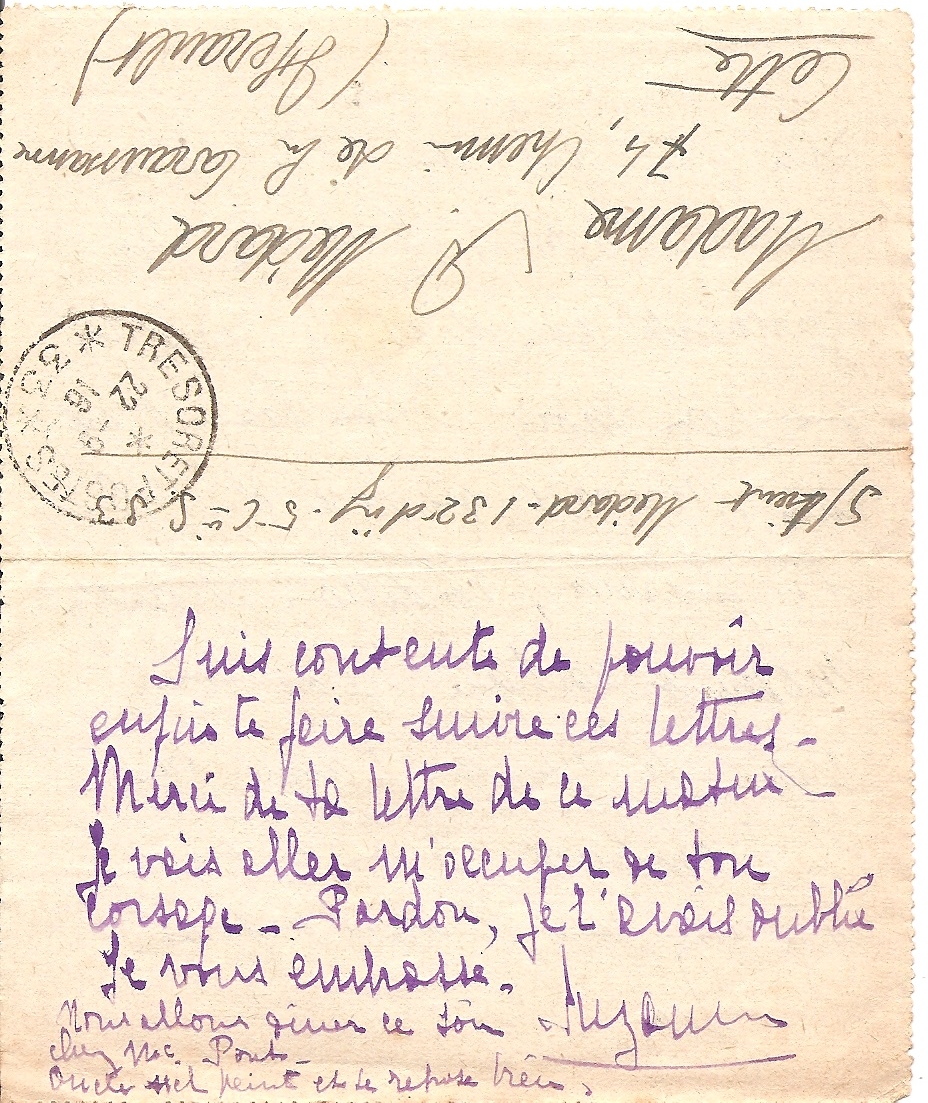 Madame P. Médard
74, Chemin de la Caraussanne
Cette
(Hérault)
TRESOR ET POSTES * 33 *
22
16
S/Lieut Médard - 132 d'inf - 5e Cie S. P. 3
Suis contente de pouvoir
enfin te faire suivre ces lettres -
Merci de ta lettre de ce matin -
Je vais aller m'occuper de ton
corsage - Pardon, je l'avais oublié
Je vous embrasse.
Suzanne
Nous allons dîner ce soir
chez Me Pont -
Oncle peint et se repose bien,